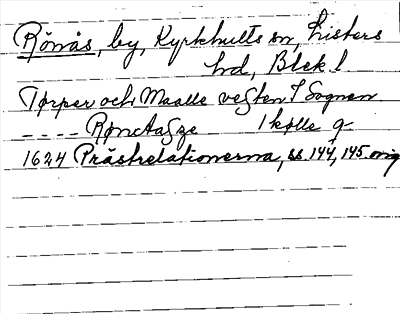 Rönås, by, Kyrkhults sn, Listers
hd, Blek. l
Torper och Maalle vesten I Sognen
---- Røntasze 1 kolle g-
1624 Prästrelationerna, ss. 144, 145. orig